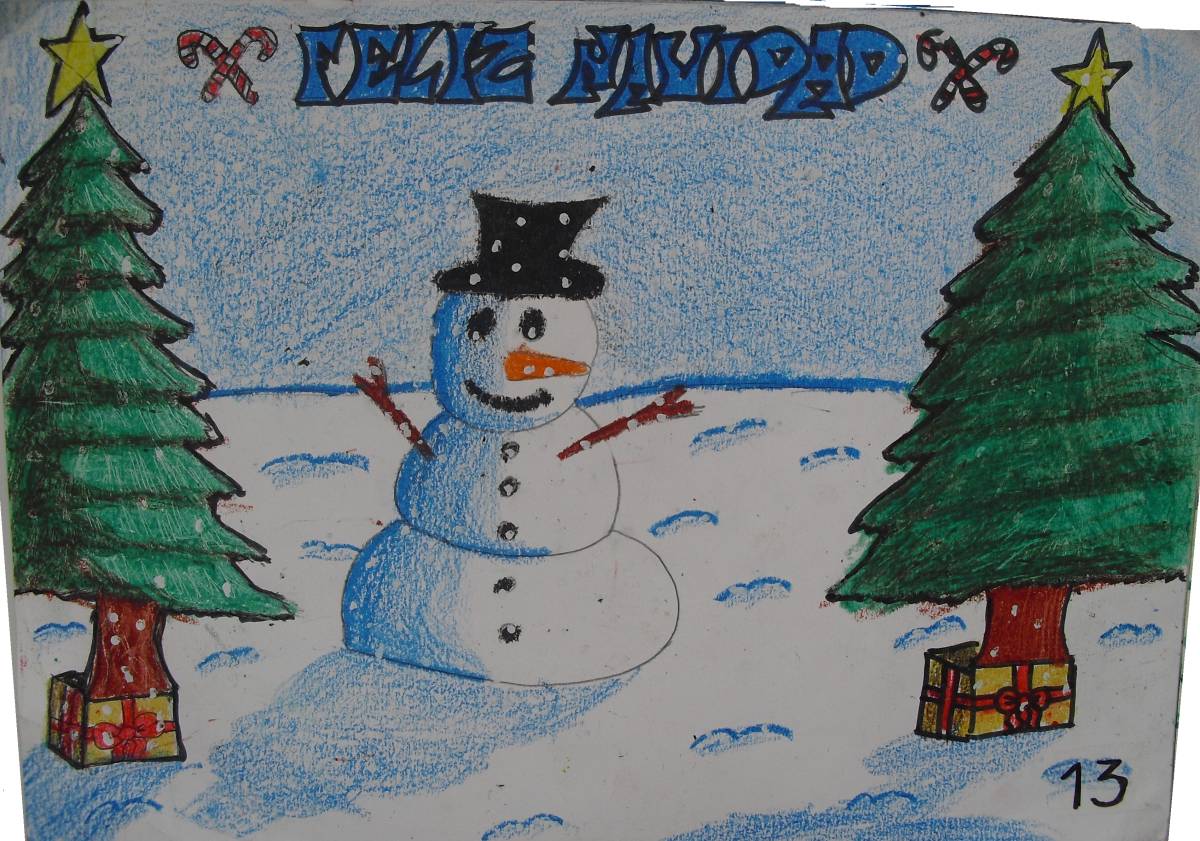 FELIZ NAVIDAD
13